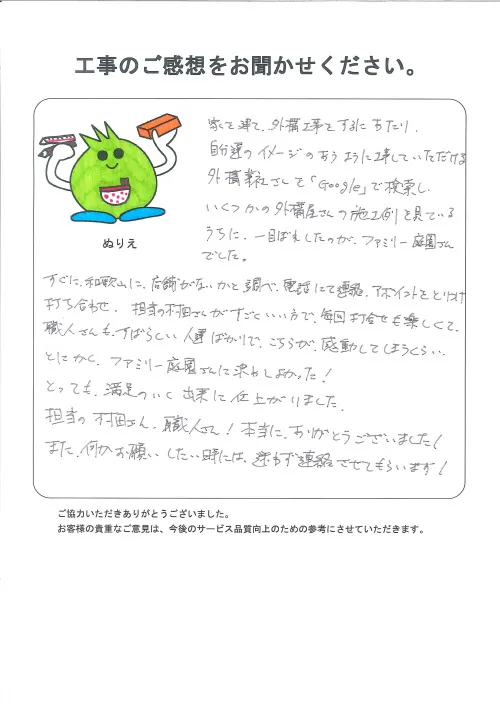 工事のご感想をお聞かせください。
家を建て、外構工事をするにあたり、
自分達のイメージのあうように工事していただける
外構業社さんを「Google」で検索し
いくつかの外構屋さんの施工例を見ている
うちに、一目ぼれしたのが、ファミリー庭園さん
でした。
ぬりえ
すぐに、和歌山に、店舗がないかと調べ、電話にて連絡、アポイントをとりつけ
打ち合わせ。担当の村田さんがすごくいい方で、毎回打合せも楽しくて、
職人さんも、すばらしい人達ばかりで、こちらが、感動してしまうくらい
とにかく、ファミリー庭園さんに決めてよかった!
とっても、満足のいく出来に仕上がりました。
担当の村田さん、職人さん!本当に、ありがとうございました!
また、何かお願いしたい時には、迷わず連絡させてもらいます!
ご協力いただきありがとうございました。
お客様の貴重なご意見は、今後のサービス品質向上のための参考にさせていただきます。